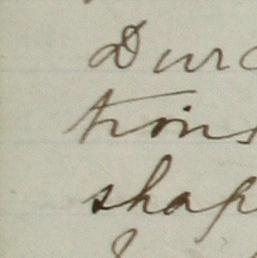 Durc
tions
shap